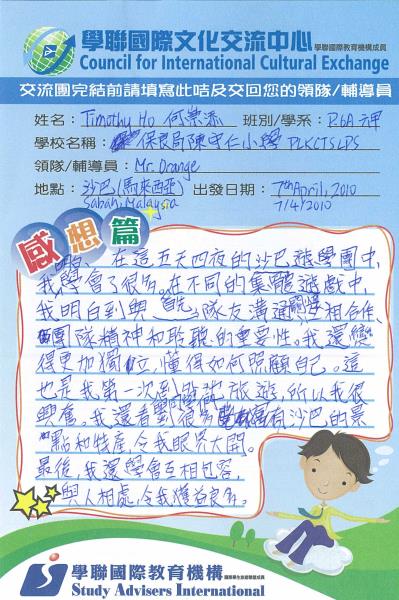 學聯國際文化交流中心 學聯國際教育機構成員
Council for International Cultural Exchange
交流團完結前請填寫此咭及交回您的領隊/輔導員
姓名： Timothy Ho 何崇添 班別/學系： P.6A 六甲
學校名稱： 保良局陳守仁小學 PLKCTSLPS
領隊/輔導員： Mr. Orange
地點： 沙巴(馬來西亞) 出發日期： 7th April, 2010
Sabah, Malaysia 7/4/2010
感想篇
在這五天四夜的沙巴遊學團中,
我學會了很多。在不同的集體遊戲中,
我明白到與隊友溝通、互相合作、
團隊精神和聆聽的重要性。我還變
得更加獨立,懂得如何照顧自己。這
也是我第一次到沙巴旅遊,所以我很
興奮。我還看到很多有沙巴的景
點和特產,令我眼界大開。
最後,我還學會互相包容,
與人相處,令我獲益良多。
學聯國際教育機構
Study Advisers International